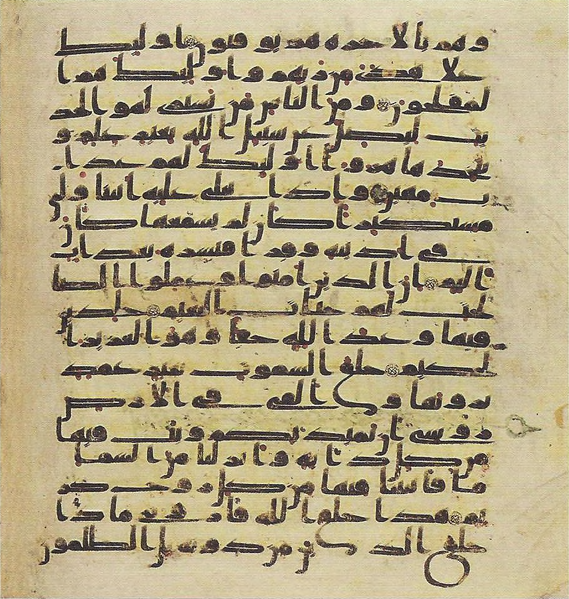 وهم بالاخرة هم يوقنون اوليك
علا هدى من ربهم واوليك هم ا
لمفلحون ومن الناس من يشتري لهو الحد
يث ليضل عن سبيل الله بغير علم و
يتخذها هزوا اوليك لهم عذا
ب مهين واذا تتلى عليه ايتنا ولى
مستكبرا كان لم يسمعها كان
في اذنيه وقرا فبشره بعذاب
اليم ان الذين امنوا وعملوا الصا
لحت لهم جنات النعيم خلدين
فيها وعد الله حقا وهو العزيز ا
لحكيم خلق السموت بغير عمد
ترونها والقى في الارض
روسي ان تميد بكم وبث فيها
من كل دابة وانزلنا من السما
ما فانبتنا فيها من كل زوج كر
يم هذا خلق الله فاروني ماذا
خلق الذين من دونه بل الظلمون